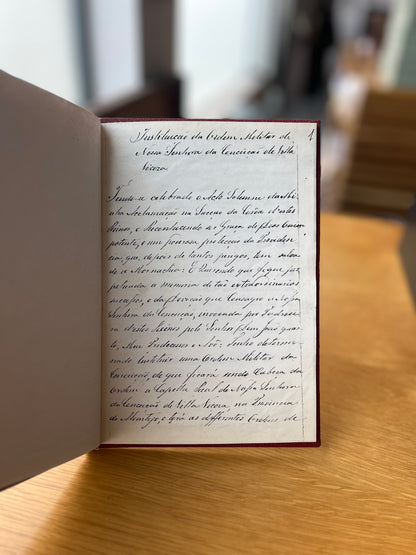 Instituição da Ordem Militar de 1
Nossa Senhora da Conceição de Villa
Viçoza
Tendo-se celebrado o Acto Solemne da Mi-
nha Acclamação na Sucessão da Coroa d'estes
Reinos, e Reconhecendo a Graça de Deos Omni
potente, e sua piedosa protecção da Providen-
cia, que, depois de tantos p tem salva-
do a Monarchia: E Querendo que fique per
petuada a memoria de tão extraordinarios
successos, e da Devoção que Consagro a Nossa
Senhora da Conceição, invocada por Padroei
ra d'estes Reinos pelo Senhor Dom João quar
to, Meu Predecessor e Avô: Tenho determi-
nado Instituir uma Ordem Militar da
Conceição, de que ficará sendo Cabeça da
Ordem a Capella Real de Nossa Senhora
da Conceição de Villa Viçoza, na Provincia
do Alemtejo, e terá as differentes Ordens de